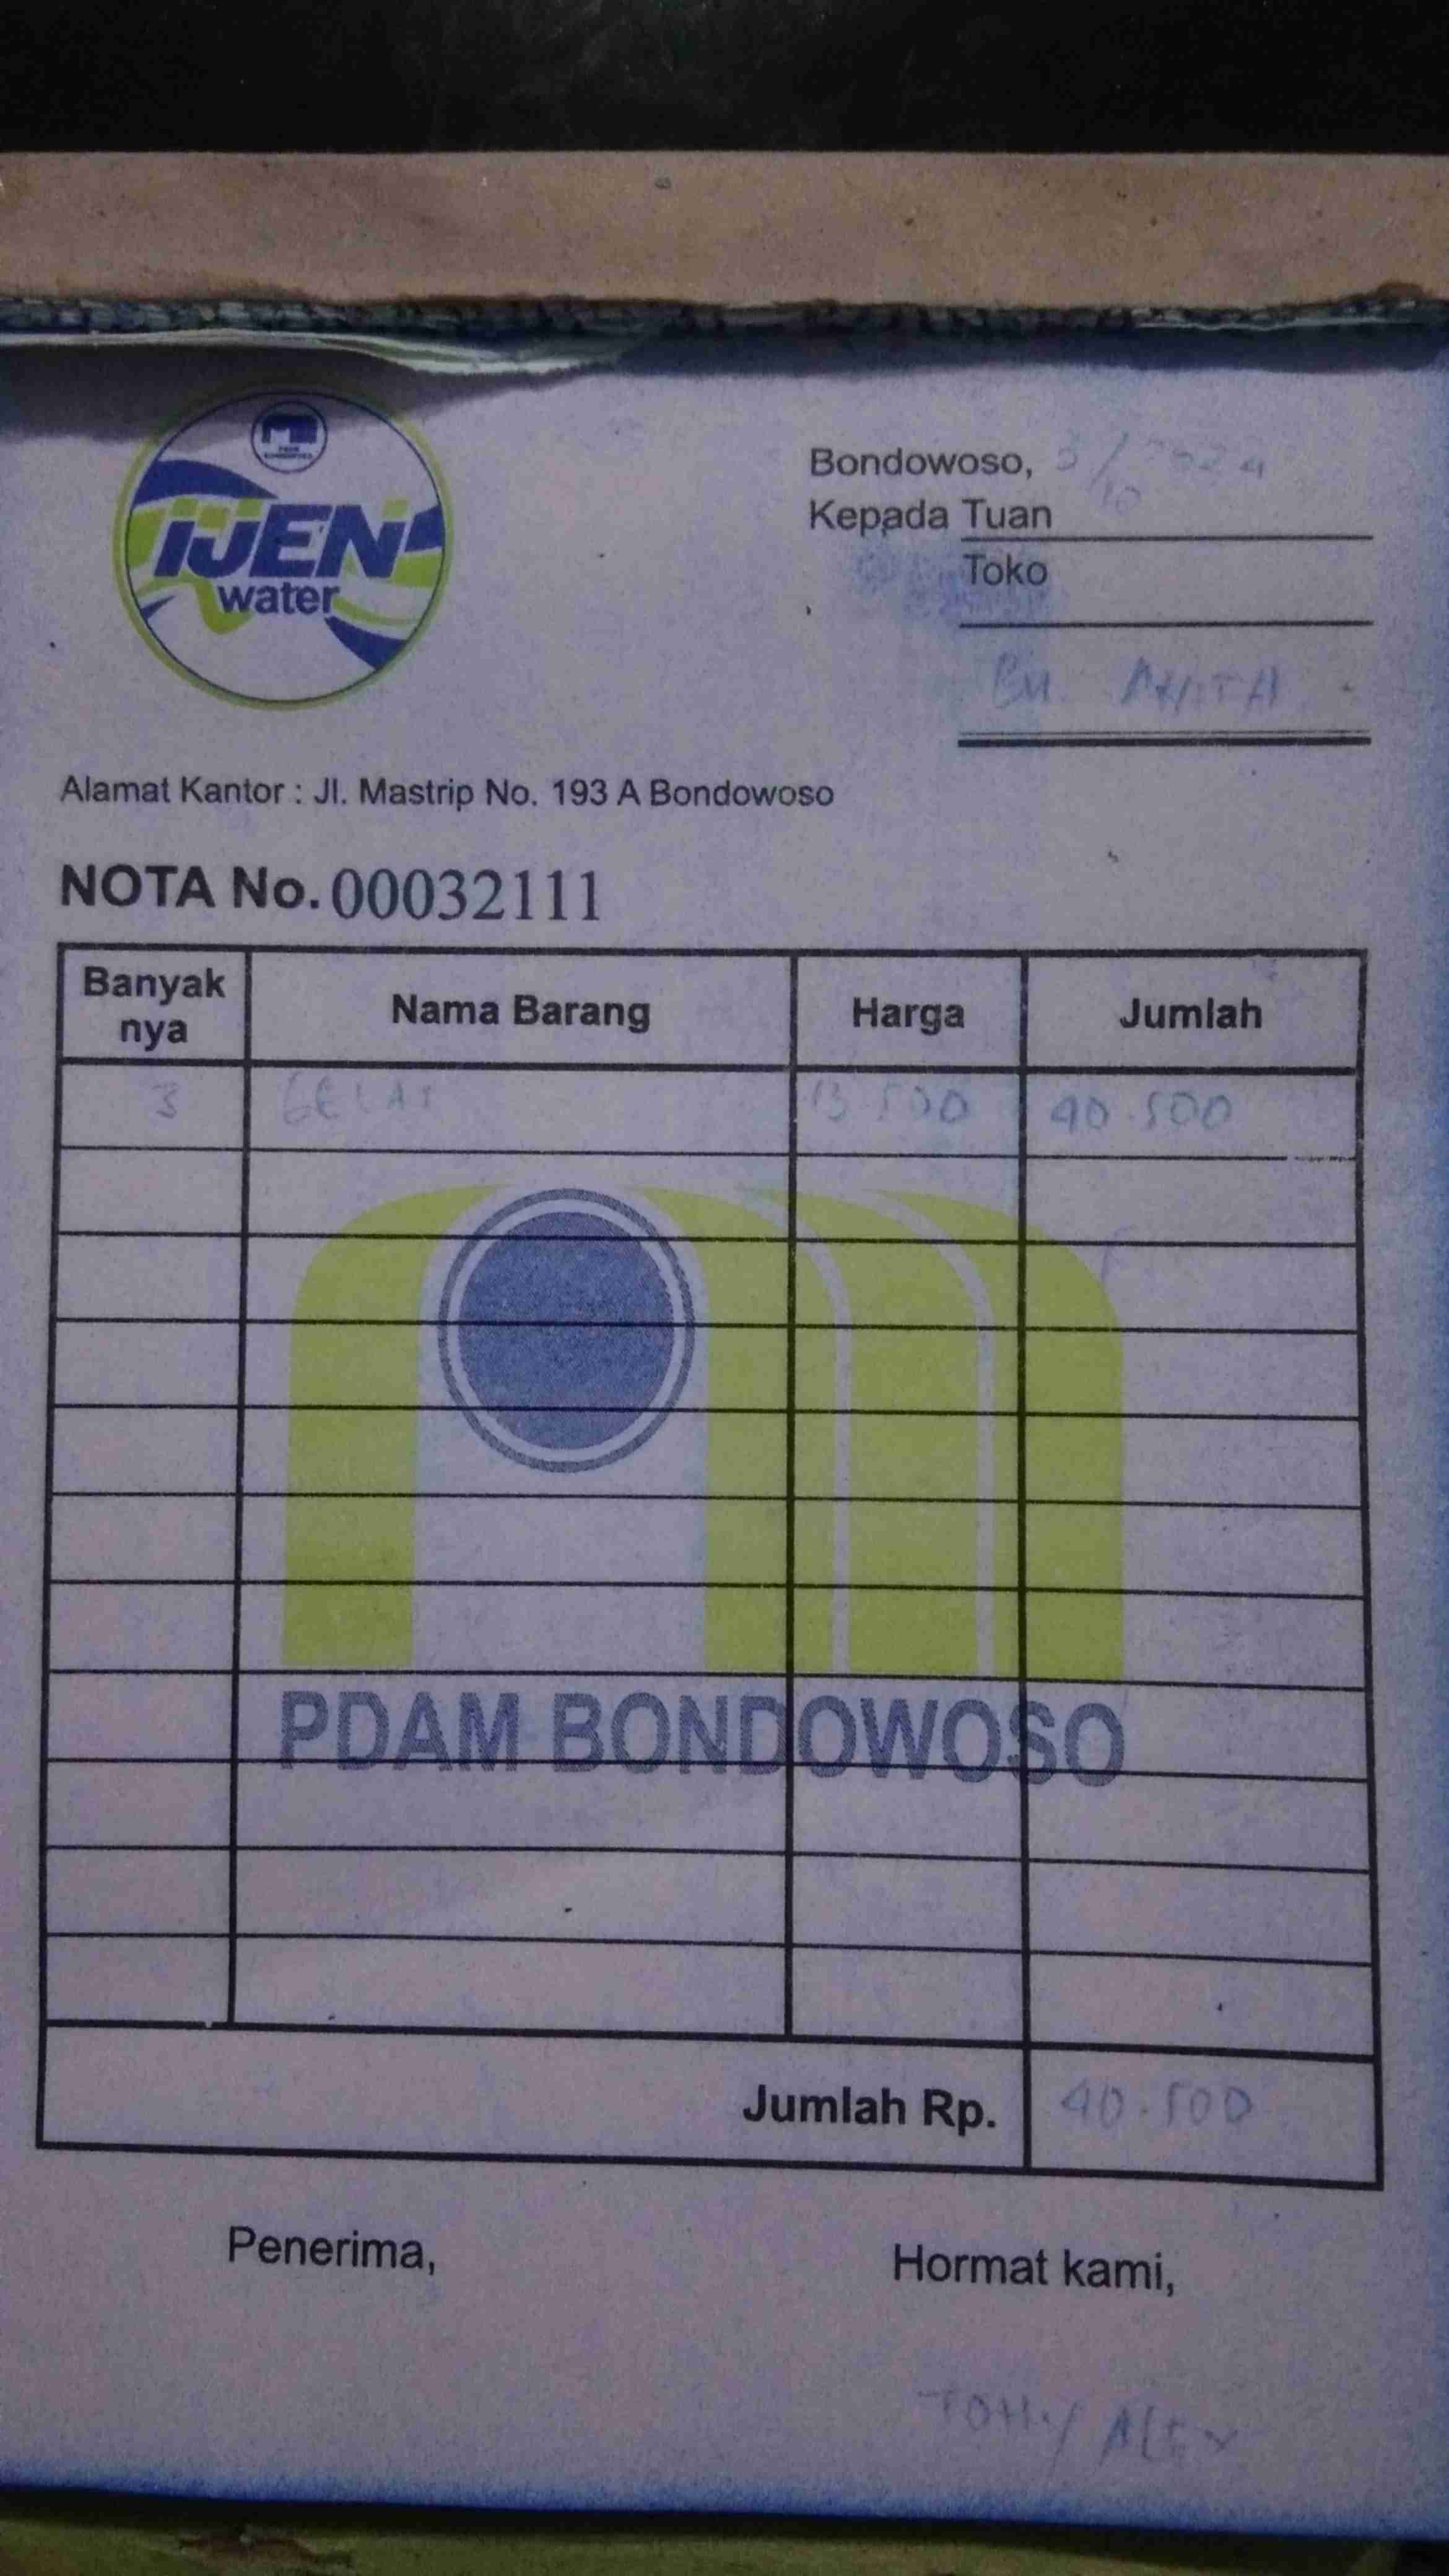 iJEN
water
Bondowoso, 3/10 2024
Kepada Tuan
Toko
Bu
Alamat Kantor : Jl. Mastrip No. 193 A Bondowoso
NOTA No. 00032111
Banyak nya Nama Barang Harga Jumlah
3 GELAS 13.500 40.500
PDAM BONDOWOSO
Jumlah Rp. 40.500
Penerima, Hormat kami,
ALEX